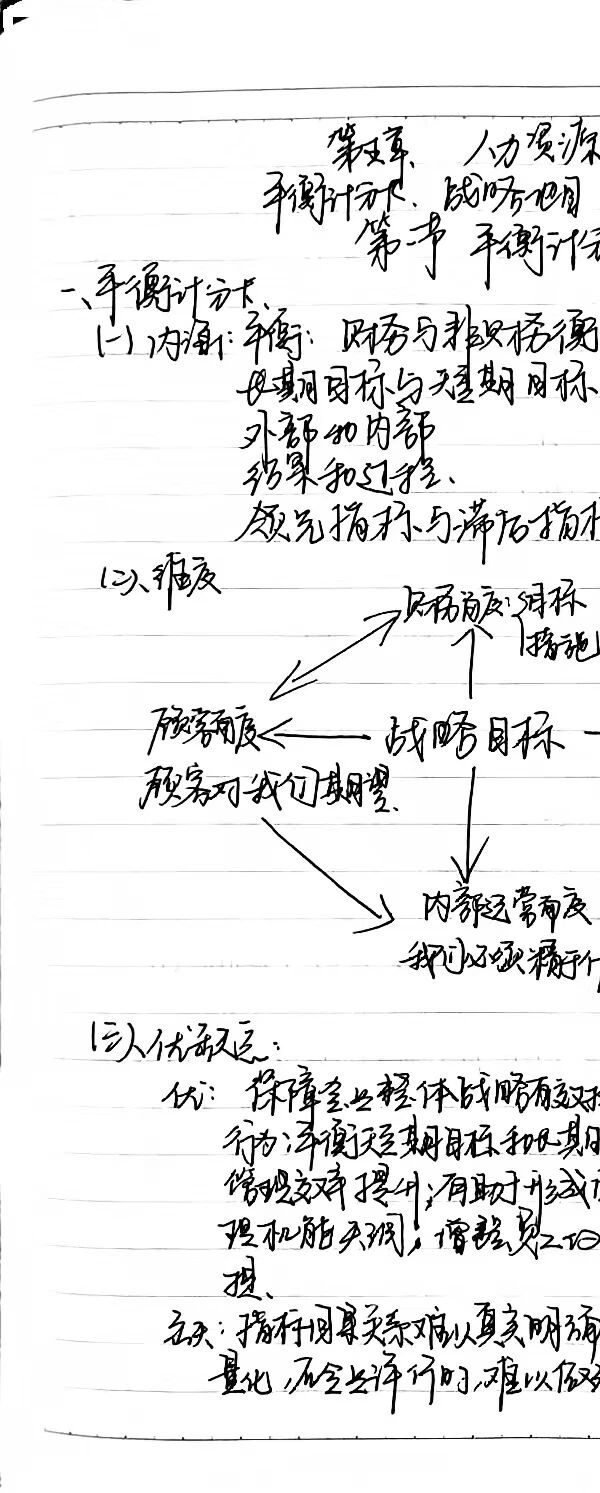 第五章、 人力资源
平衡计分卡、战略地图
第一节 平衡计分
一、平衡计分卡、
(一)、内涵: 平衡: 财务与非财务衡
长期目标与短期目标
外部和内部
结果和过程、
领先指标与滞后指标
(二)、维度
财务角度: 目标
措施
顾客角度 战略目标
顾客对我们期望、
内部运营角度
我们必须精于什
(三)、优缺点:
优: 保障企业整体战略有效执
行为;平衡短期目标和长期
管理效率提升;有助于形成
理机能失调;增强员工
提、
缺: 指标因果关系难以真实明确
量化,在企业洋行时,难以做到